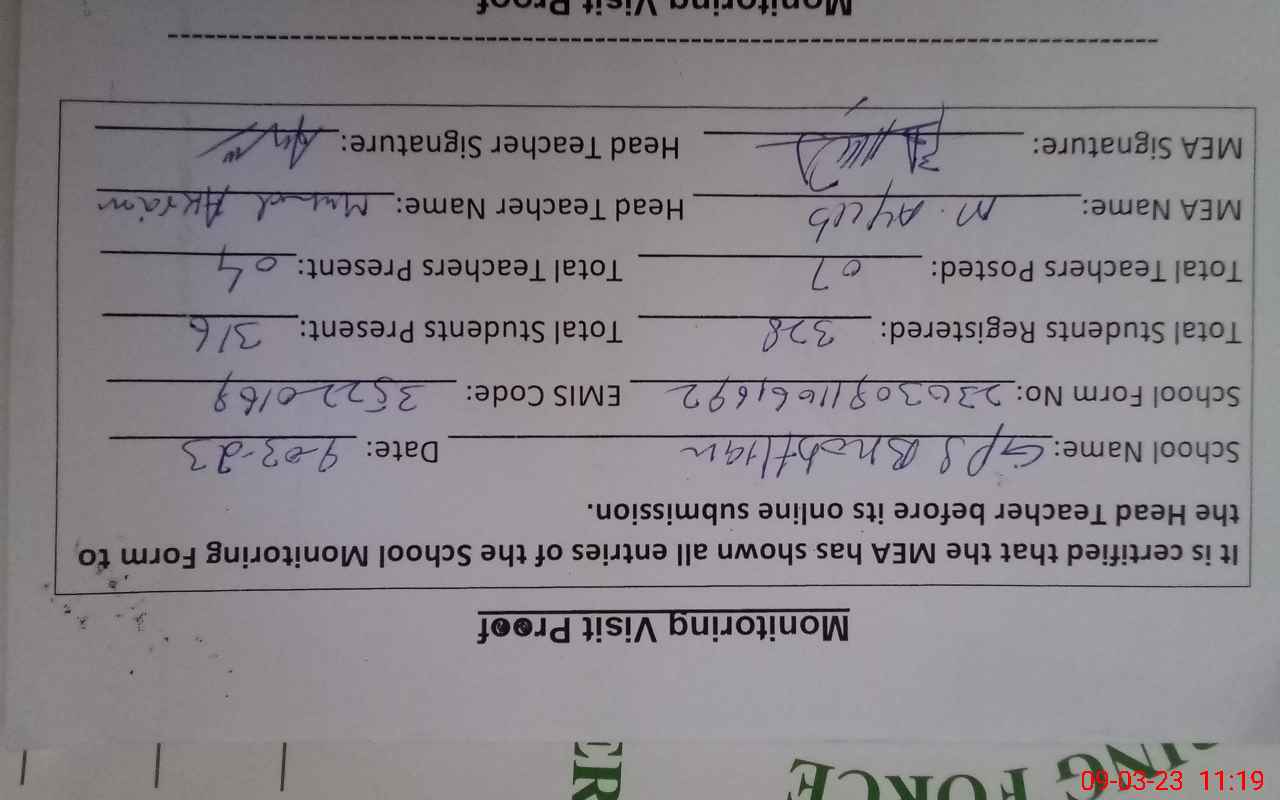 RING FORCE
CR
Monitoring Visit Proof
It is certified that the MEA has shown all entries of the School Monitoring Form to
the Head Teacher before its online submission.
School Name: GPS Date: 9-03-23
School Form No: EMIS Code: 35220169
Total Students Registered: 328 Total Students Present: 316
Total Teachers Posted: 07 Total Teachers Present: 04
MEA Name: M. Ayub Head Teacher Name: Akram
MEA Signature: Head Teacher Signature:
Monitoring Visit Proof
09-03-23 11:19